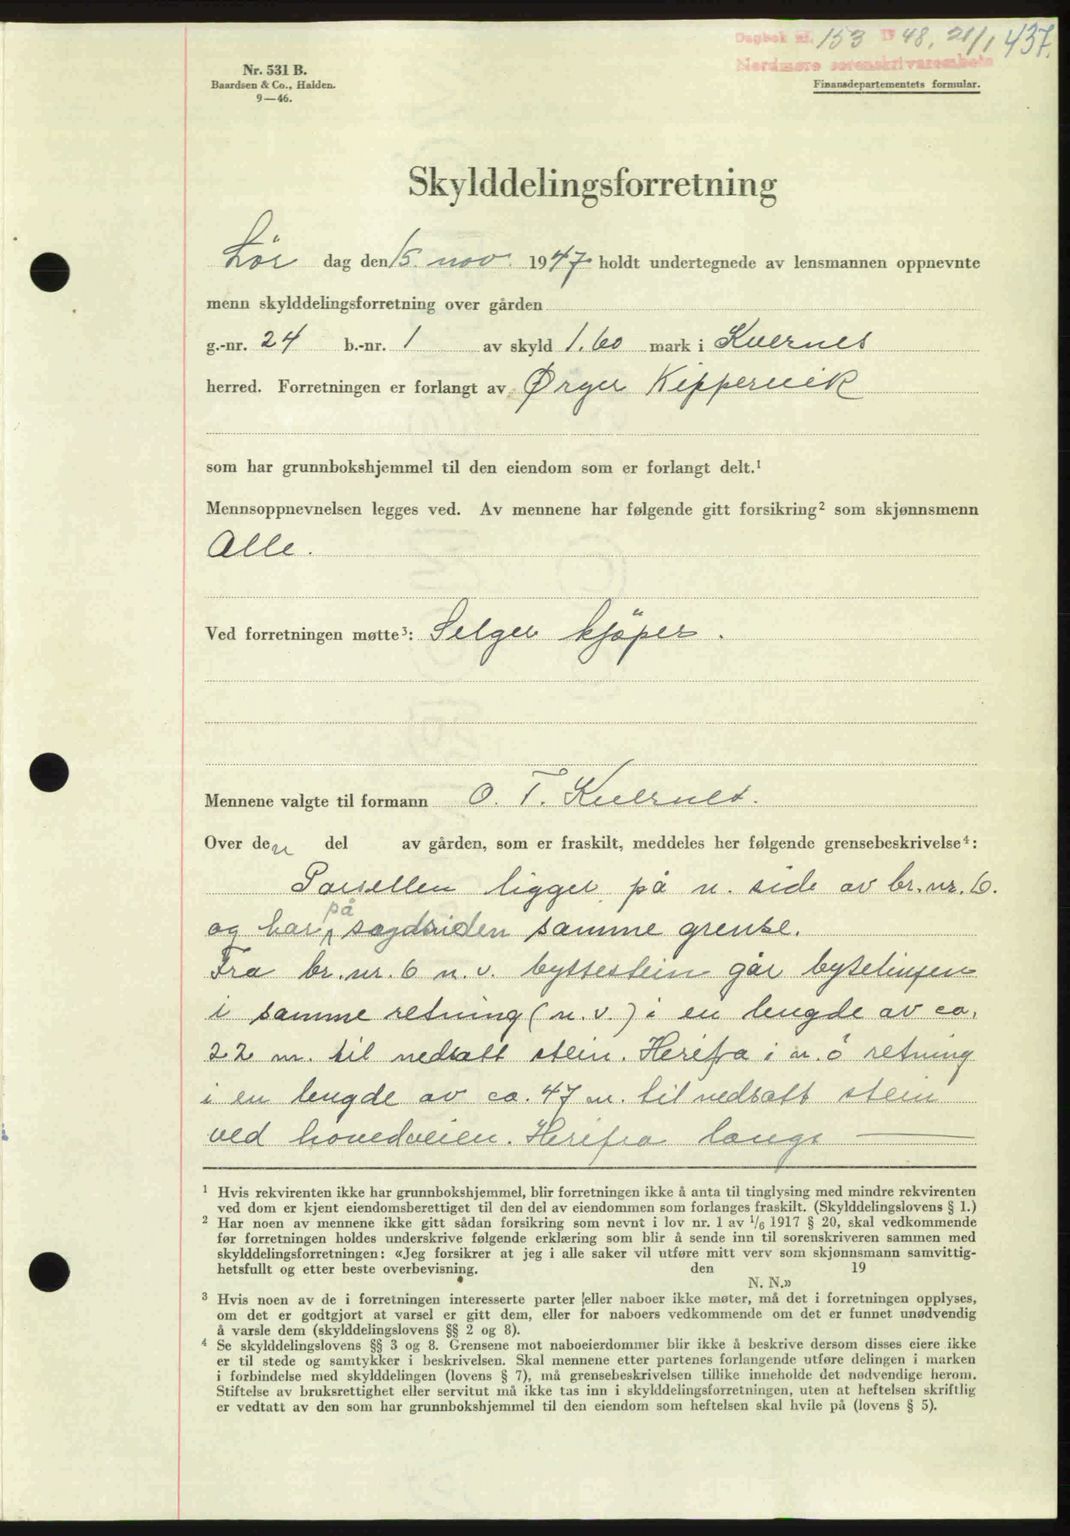 Dagbok nr. 153 19 48, 21/1 437.
Nordmøre sorenskrivarembete
Nr. 531 B.
Baardsen & Co., Halden.
9—46.
Finansdepartementets formular.
Skylddelingsforretning
Lør dag den 15. nov. 1947 holdt undertegnede av lensmannen oppnevnte
menn skylddelingsforretning over gården
g.-nr. 24 b.-nr. 1 av skyld 1.60 mark i Kvernes
herred. Forretningen er forlangt av Ørger Kippervik
som har grunnbokshjemmel til den eiendom som er forlangt delt.¹
Mennsoppnevnelsen legges ved. Av mennene har følgende gitt forsikring² som skjønnsmenn
Alle.
Ved forretningen møtte³: Selger kjöper.
Mennene valgte til formann O. T. Kvernes.
Over den del av gården, som er fraskilt, meddeles her følgende grensebeskrivelse⁴:
Parsellen ligger på n. side av br. nr. 6.
og har på samme grense.
Fra br. nr. 6 n. v. byttestein går
i samme retning (n. v.) i en lengde av ca.
22 m. til nedsatt stein. Herifra i n. ö retning
i en lengde av ca. 47 m. til nedsatt stein
ved hovedveien. Herifra langs —
¹ Hvis rekvirenten ikke har grunnbokshjemmel, blir forretningen ikke å anta til tinglysing med mindre rekvirenten
ved dom er kjent eiendomsberettiget til den del av eiendommen som forlanges fraskilt. (Skylddelingslovens § 1.)
² Har noen av mennene ikke gitt sådan forsikring som nevnt i lov nr. 1 av 1/6 1917 § 20, skal vedkommende
før forretningen holdes underskrive følgende erklæring som blir å sende inn til sorenskriveren sammen med
skylddelingsforretningen: «Jeg forsikrer at jeg i alle saker vil utføre mitt verv som skjønnsmann samvittig-
hetsfullt og etter beste overbevisning. den 19
N. N.»
³ Hvis noen av de i forretningen interesserte parter eller naboer ikke møter, må det i forretningen opplyses,
om det er godtgjort at varsel er gitt dem, eller for naboers vedkommende om det er funnet unødvendig
å varsle dem (skylddelingslovens §§ 2 og 8).
⁴ Se skylddelingslovens §§ 3 og 8. Grensene mot naboeierdommer blir ikke å beskrive dersom disses eiere ikke
er til stede og samtykker i beskrivelsen. Skal mennene etter partenes forlangende utføre delingen i marken
i forbindelse med skylddelingen (lovens § 7), må grensebeskrivelsen tillike inneholde det nødvendige herom.
Stiftelse av bruksrettighet eller servitut må ikke tas inn i skylddelingsforretningen, uten at heftelsen skriftlig
er vedtatt av den som har grunnbokshjemmel til den eiendom som heftelsen skal hvile på (lovens § 5).